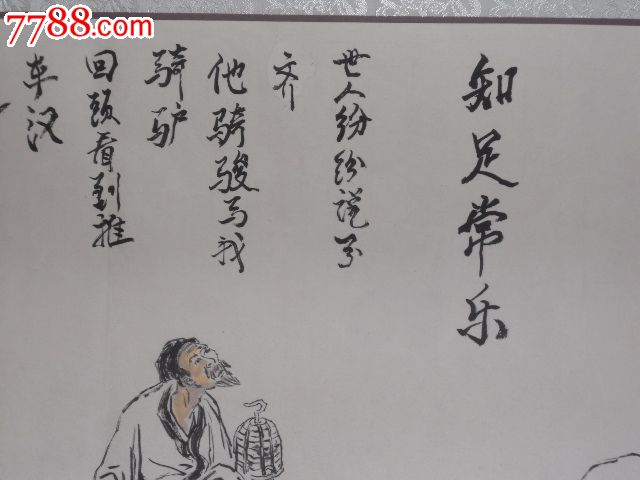 7788.com
知足常乐
世人纷纷说不
齐
他骑骏马我
骑驴
回头看到推
车汉